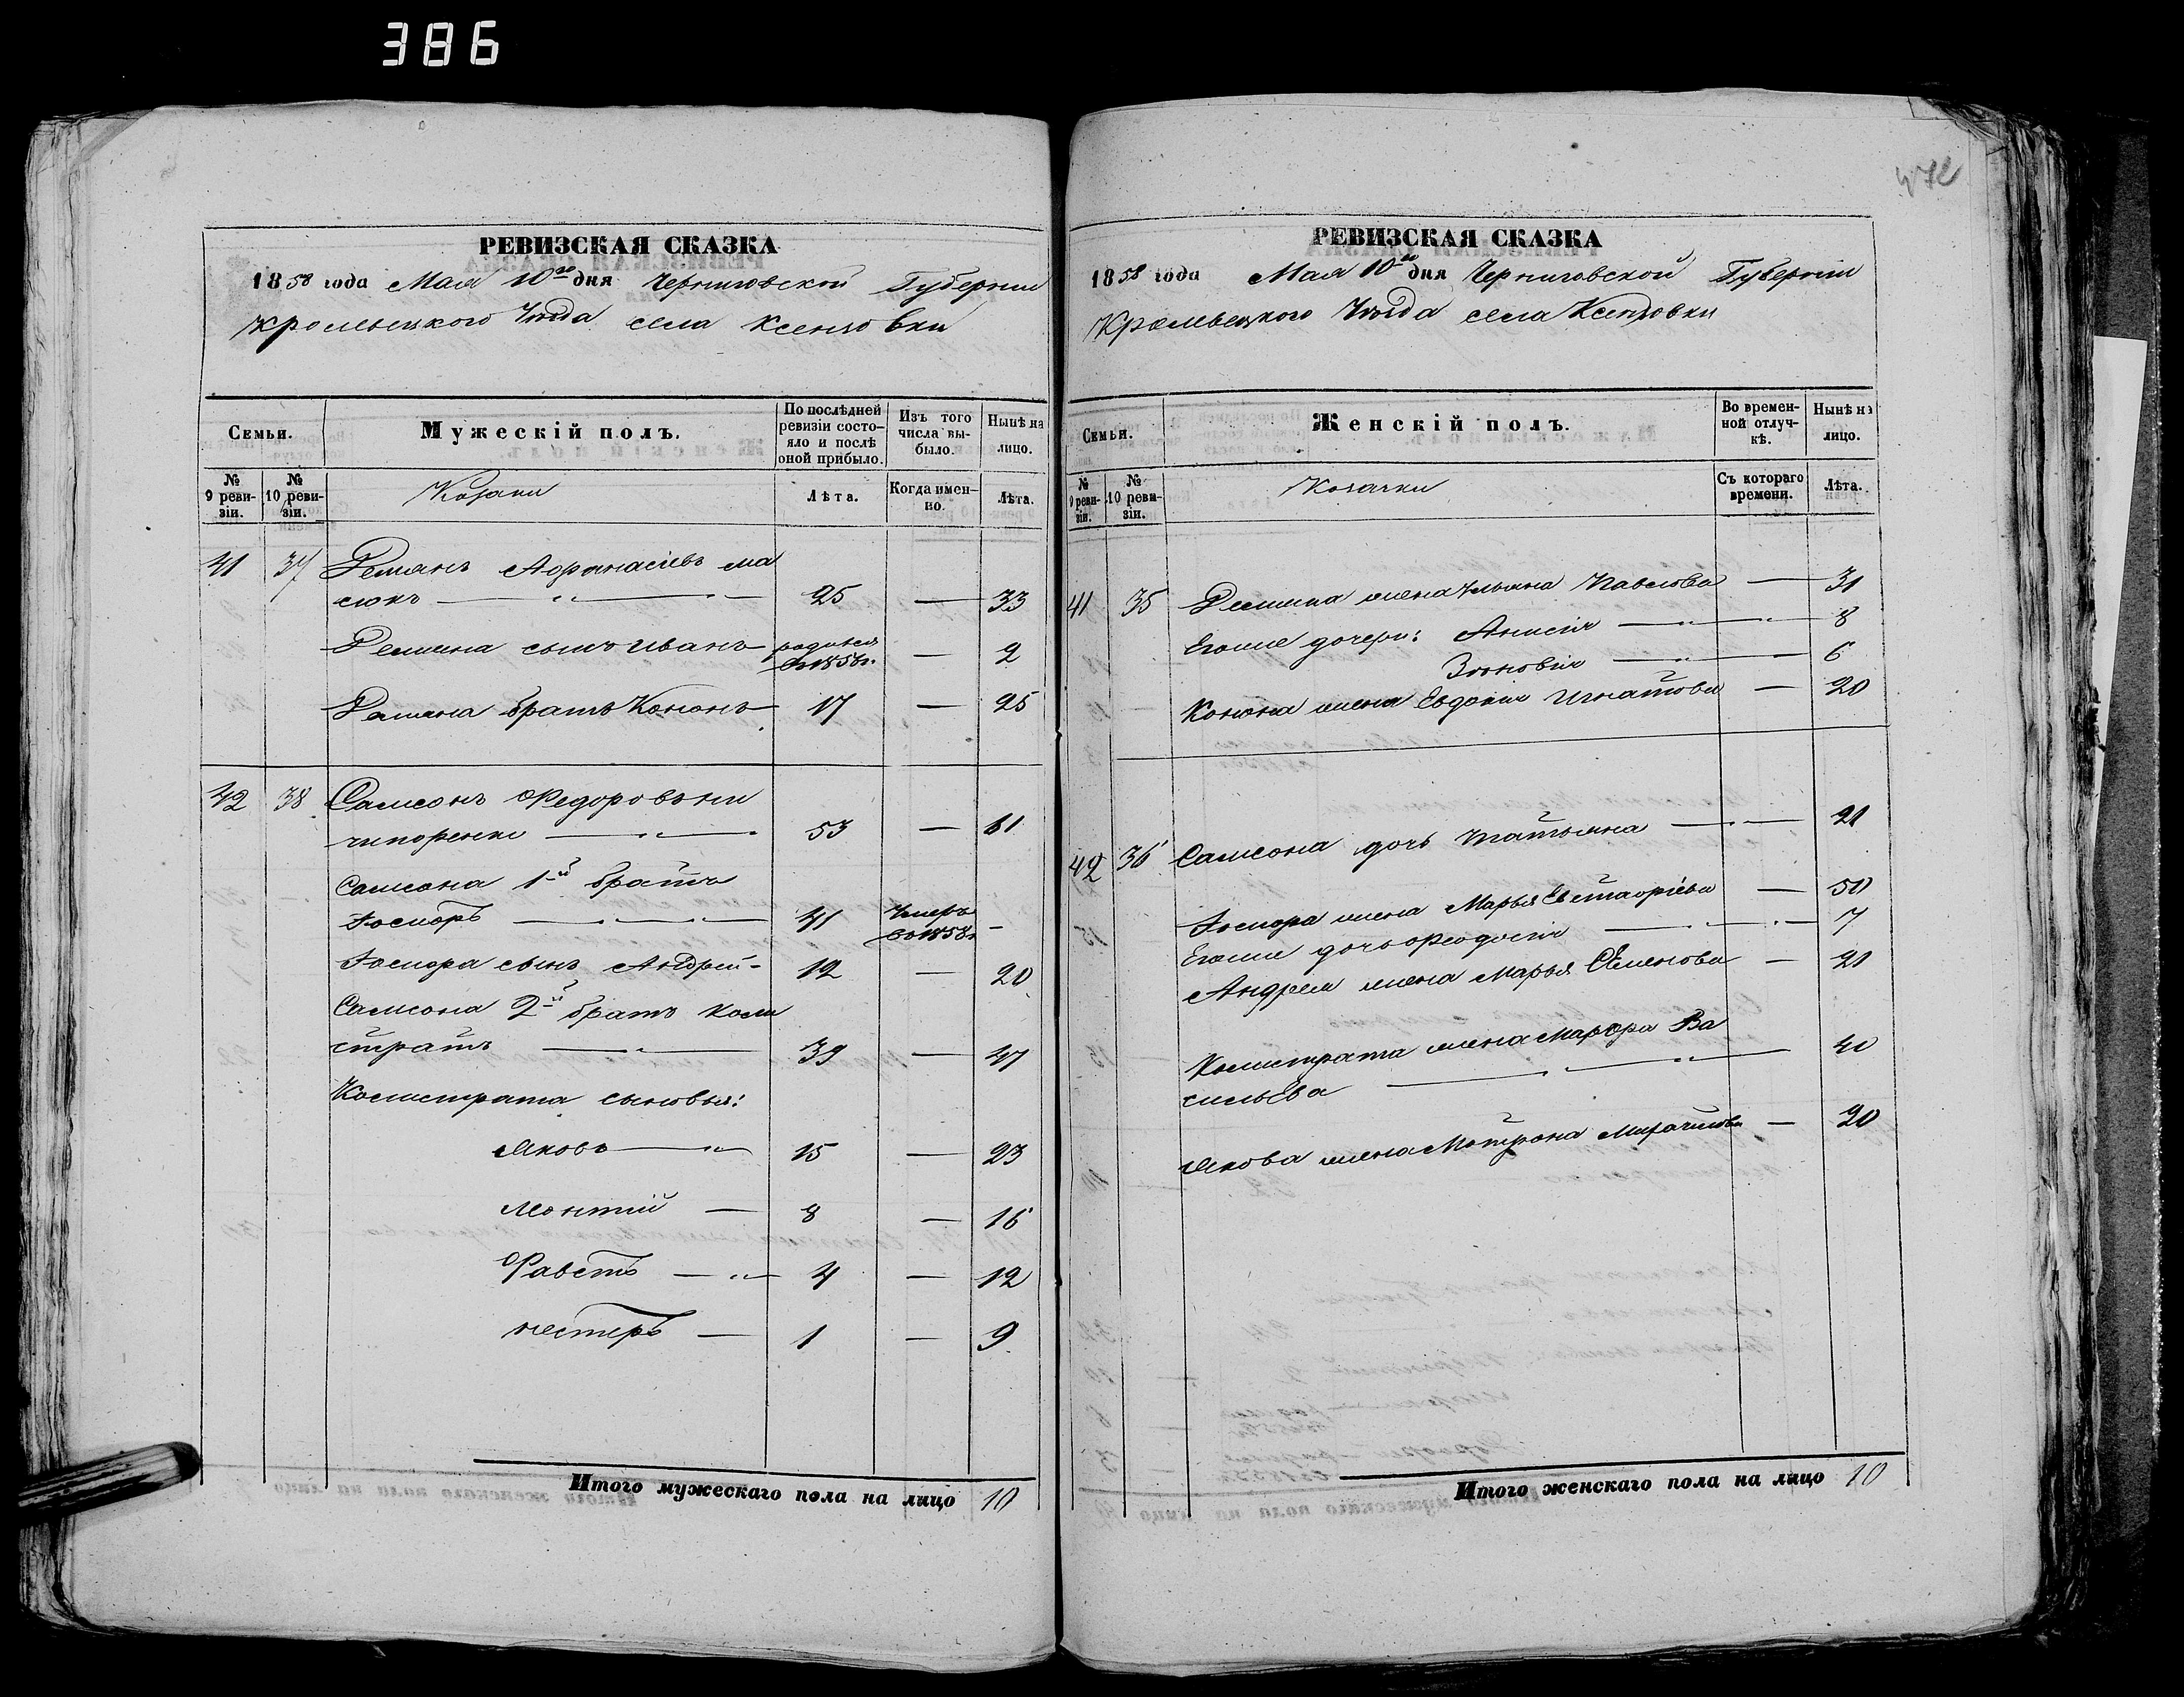 386
472
РЕВИЗСКАЯ СКАЗКА
1858 года Мая 10го дня Черниговской Губернии
Кролевецкого Уѣзда села Ксензовки
Семьи.
Мужескій полъ.
По послѣдней ревизіи состояло и послѣ оной прибыло.
Изъ того числа выбыло.
Нынѣ на лицо.
№ 9 ревизіи.
№ 10 ревизіи.
Козаки
Лѣта.
Когда именно.
Лѣта.
41 37 Демянъ Афанасіевъ ма
сюкъ — " — 25 — 33
Демяна сынъ Иванъ родился въ 1856г. — 2
Демяна братъ Кононъ 17 — 25
42 38 Самсонъ Федоровъ ни
чипоренко — " — 53 — 61
Самсона 1й братъ
Госпоръ — " — 41 Умеръ въ 1858г. —
Госпора сынъ Андрей - 12 — 20
Самсона 2й братъ Кали
стратъ — " — 39 — 47
Калистрата сыновья:
Яковъ — " 15 — 23
Леонтій — 8 — 16
Фавстъ — " — 4 — 12
Нестеръ — 1 — 9
Итого мужескаго пола на лицо 10
РЕВИЗСКАЯ СКАЗКА
1858 года Мая 10го дня Черниговской Губерніи
Кролевецкого Уѣзда села Ксензовки
Семьи.
Женскій полъ.
Во временной отлучкѣ.
Нынѣ на лицо.
№ 9 ревизіи.
№ 10 ревизіи.
Козачки
Съ котораго времени.
Лѣта.
41 35 Демяна жена Ульяна Павлова — 31
Егоже дочери: Анисія — " — " — 8
Зѣновія — " — 6
Конона жена Евдокія Игнатова — 20
42 36 Самсона дочь Татьяна — " — 21
Госпора жена Марья Евстафіева — 50
Егоже дочь Феодосія — " — " — 7
Андрея жена Марья Семенова — 21
Калистрата жена Марфа Ва
сильева — " — " — 40
Якова жена Мотрона — 20
Итого женскаго пола на лицо 10